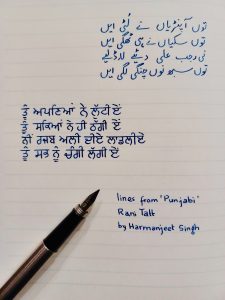 توں آپنڑیاں نے لُٹی ایں
توں سکیاں نے ہی ٹھگی ایں
نی رجب علی دئیے لاڈلیے
توں سبھ نوں چنگی لگی ایں
ਤੂੰ ਅਪਣਿਆਂ ਨੇ ਲੁੱਟੀ ਏਂ
ਤੂੰ ਸਕਿਆਂ ਨੇ ਹੀ ਠੱਗੀ ਏਂ
ਨੀਂ ਰਜਬ ਅਲੀ ਦੀਏ ਲਾਡਲੀਏ
ਤੂੰ ਸਭ ਨੂੰ ਚੰਗੀ ਲੱਗੀ ਏਂ
lines from "Punjabi"
Rani Tatt
by Harmanjeet Singh